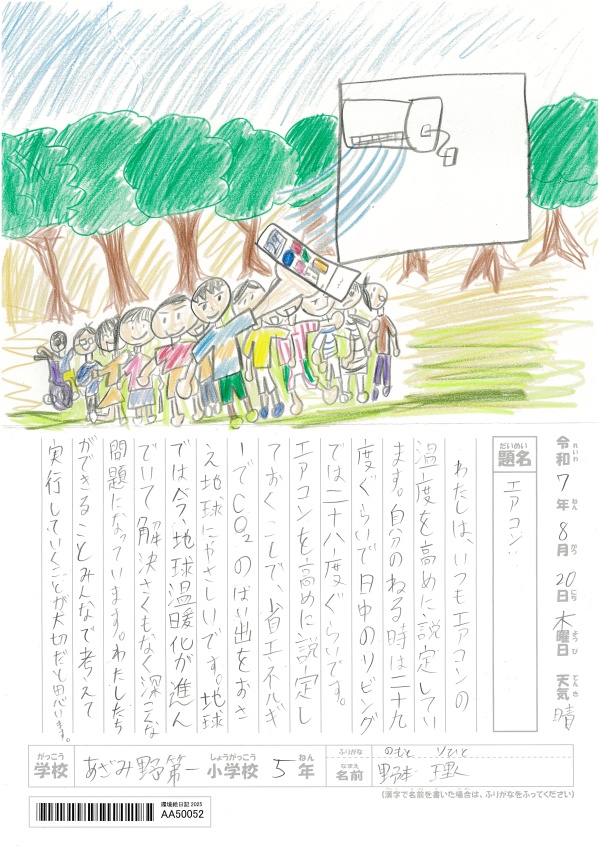 令和7年8月20日木曜日 天気 晴
れいわ ねん がつ にち ようび てんき
だいめい
題名 エアコン
わたしは、いつもエアコンの
温度を高めに説定してい
ます。自分のねる時は二十九
度ぐらいで日中のリビング
では二十八度ぐらいです。
エアコンを高めに説定し
ておくことで、省エネルギ
ーでCO2のはい出をおさ
え地球にやさしいです。地球
では今、地球温暖化が進ん
でいて解決さくもなく深こくな
問題になっています。わたしたち
ができることみんなで考えて
実行していくことが大切だと思います。
がっこう しょうがっこう ねん
学校 あざみ野第一小学校 5年
ふりがな のもと りひと
なまえ
名前 野本 理人
(漢字で名前を書いた場合は、ふりがなをふってください)
環境絵日記2025
AA50052